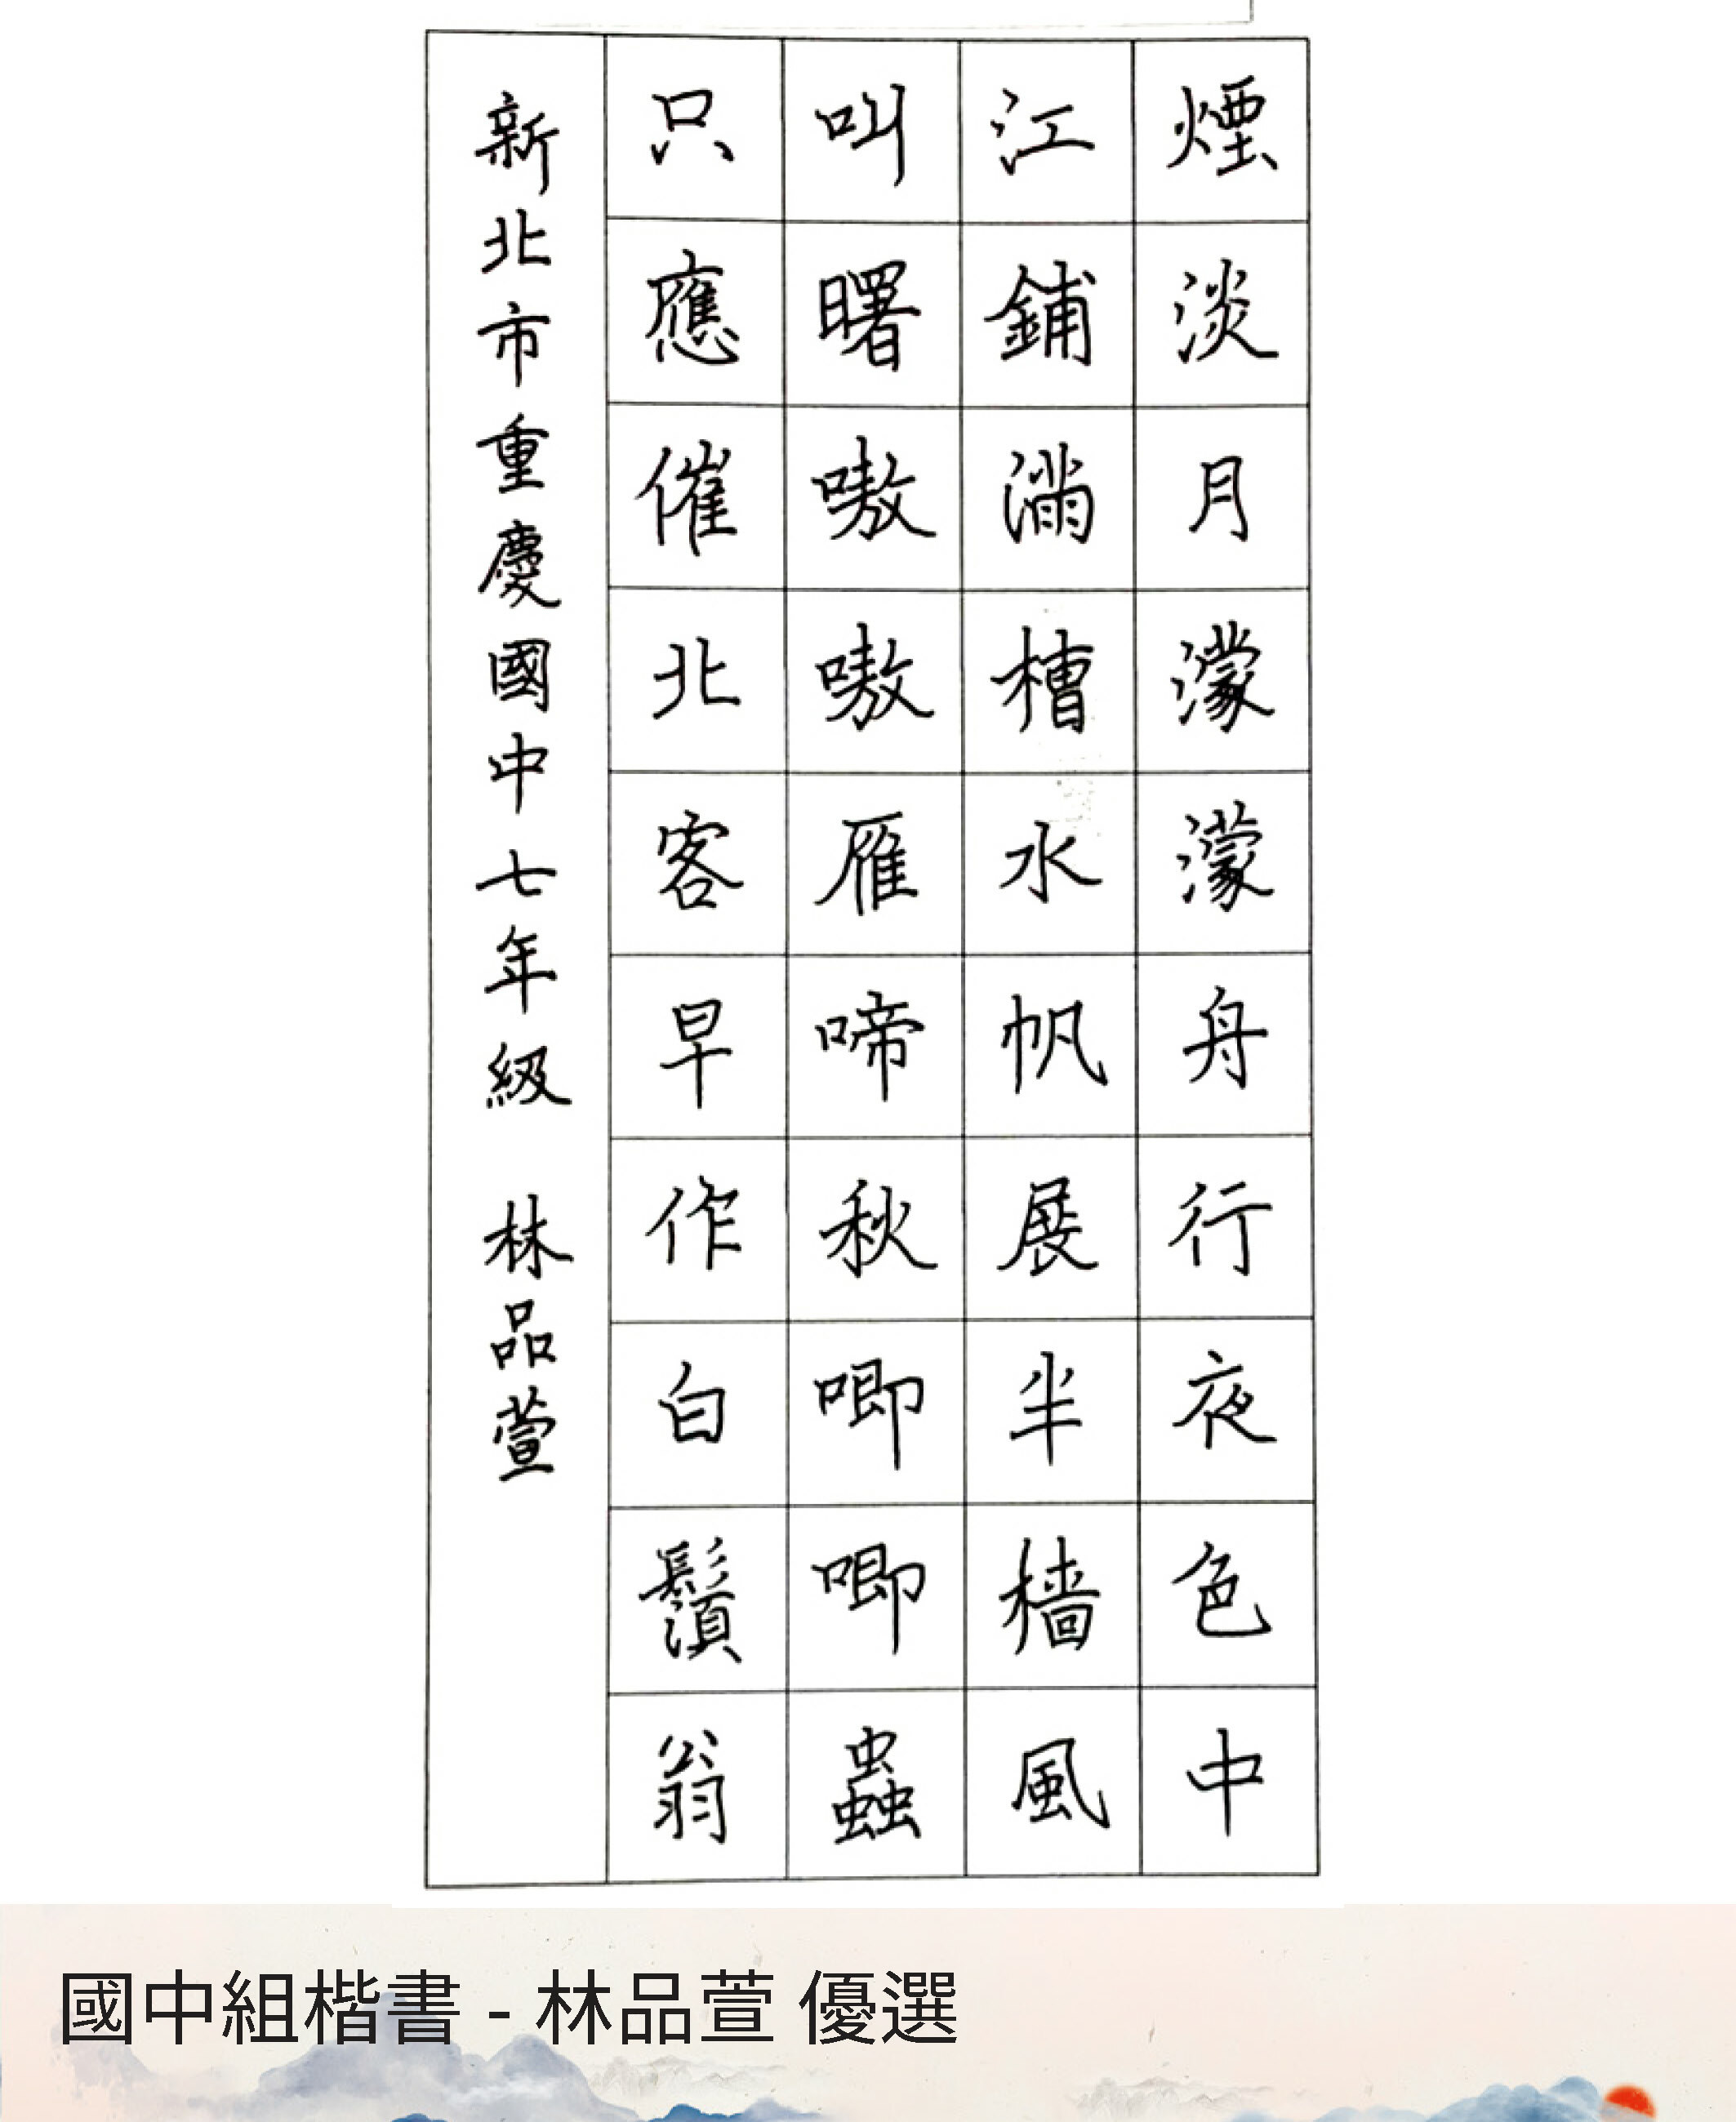 煙淡月濛濛舟行夜色中
江鋪滿槽水帆展半檣風
叫曙嗷嗷雁啼秋唧唧蟲
只應催北客早作白鬚翁
新北市重慶國中七年級 林品萱
國中組楷書 - 林品萱 優選